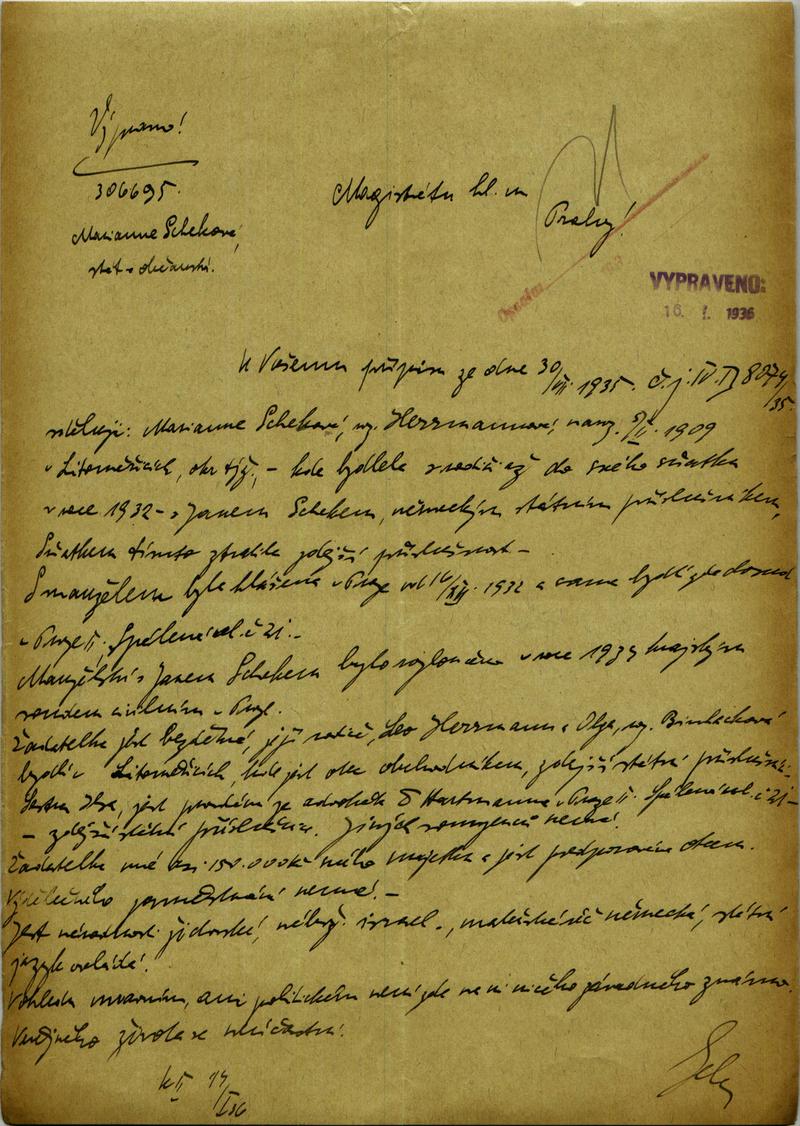 306695.
Marianne Scheková,
stát. občanství.
Magistrátu hl. m.
Prahy!
VYPRAVENO:
16. I. 1936
K Vašemu přípisu ze dne 30/VII. 1935. č. j. IV. 8074/35.
sděluji: Marianne Scheková, roz. Herrmannová, naroz. 1909
v Litoměřicích, okr. týž, - kde bydlela u rodičů až do svého sňatku
v roce 1932 - s Janem Schekem, německým státním příslušníkem,
Sňatkem tímto ztratila zdejší příslušnost -
S manželem byla hlášena v Praze od 16/XII. 1932 a sama bydlí zde dosud
v Praze II, Spálená ul. č. 21. -
Manželství s Janem Schekem bylo rozloučeno v roce 1934 krajským
soudem civilním v Praze.
Žadatelka jest bezdětná, její rodiče, Leo Herrmann a Olga, roz.
bydlí v Litoměřicích, kde jest otec obchodníkem, zdejší státní příslušníci.
Sestra jest provdaná za advokáta D Hartmanna v Praze II. Spálená ul. č. 21 -
- zdejší státní příslušnice. Jiných sourozenců nemá.
Žadatelka má asi 150.000 Kč jmění a jest podporována otcem.
Výdělečného zaměstnání nemá. -
Jest národnosti židovské, nábož. israel., mateřská řeč německá, státní
jazyk ovládá.
Ohledu mravním, ani politickém není zde na ni nic závadného známo.
Veřejného života se neúčastní.
14/I 36